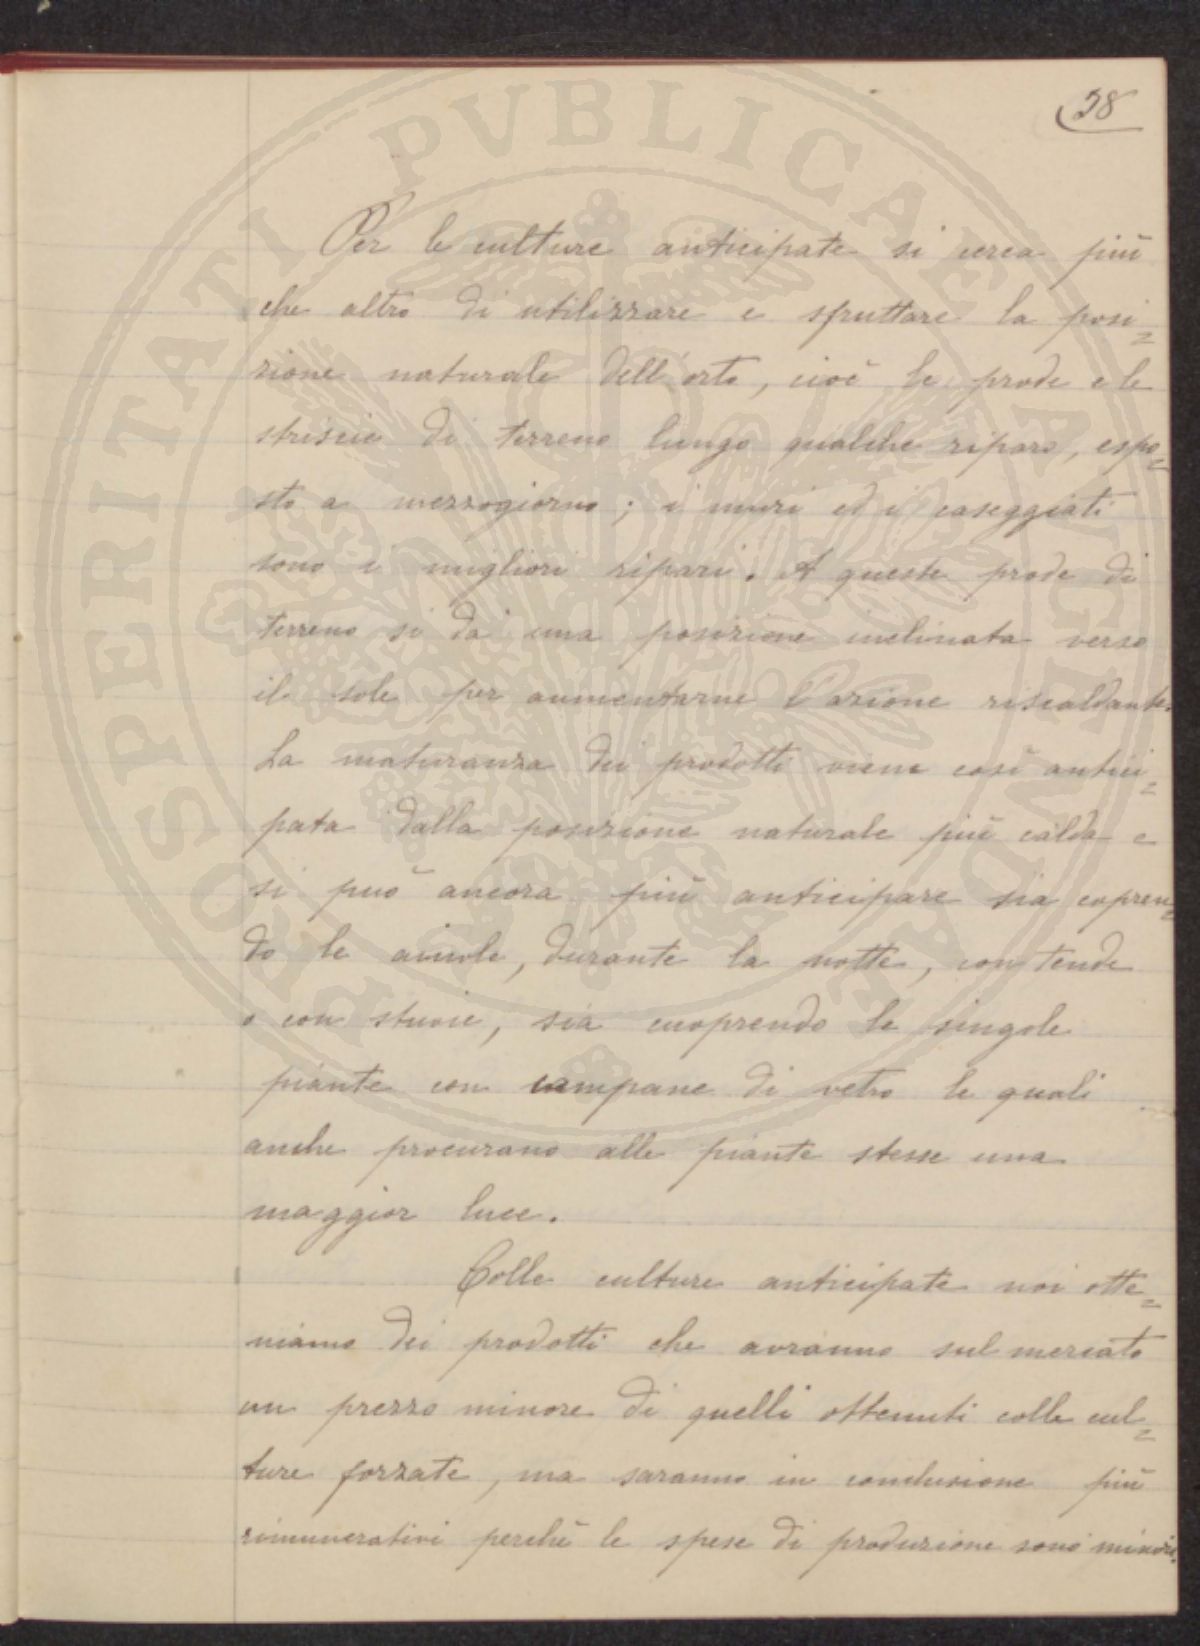 38
Per le culture anticipate si cerca più
che altro di utilizzare e sfruttare la posi=
zione naturale dell'orto, cioè le prode e le
striscie di terreno lungo qualche riparo, espo=
sto a mezzogiorno; i muri ed i caseggiati
sono i migliori ripari. A queste prode di
terreno si da una posizione inclinata verso
il sole per aumentarne l'azione riscaldante.
La maturanza dei prodotti viene così antici=
pata dalla posizione naturale più calda e
si può ancora più anticipare sia copren=
do le aiuole, durante la notte, con tende
o con stuoie, sia cuoprendo le singole
piante con campane di vetro le quali
anche procurano alle piante stesse una
maggior luce.
Colle culture anticipate noi otte=
niamo dei prodotti che avranno sul mercato
un prezzo minore di quelli ottenuti colle cul=
ture forzate, ma saranno in conclusione più
rimunerativi perché le spese di produzione sono minori.
PROSPERITATI PVBLICAE AVGENDAE